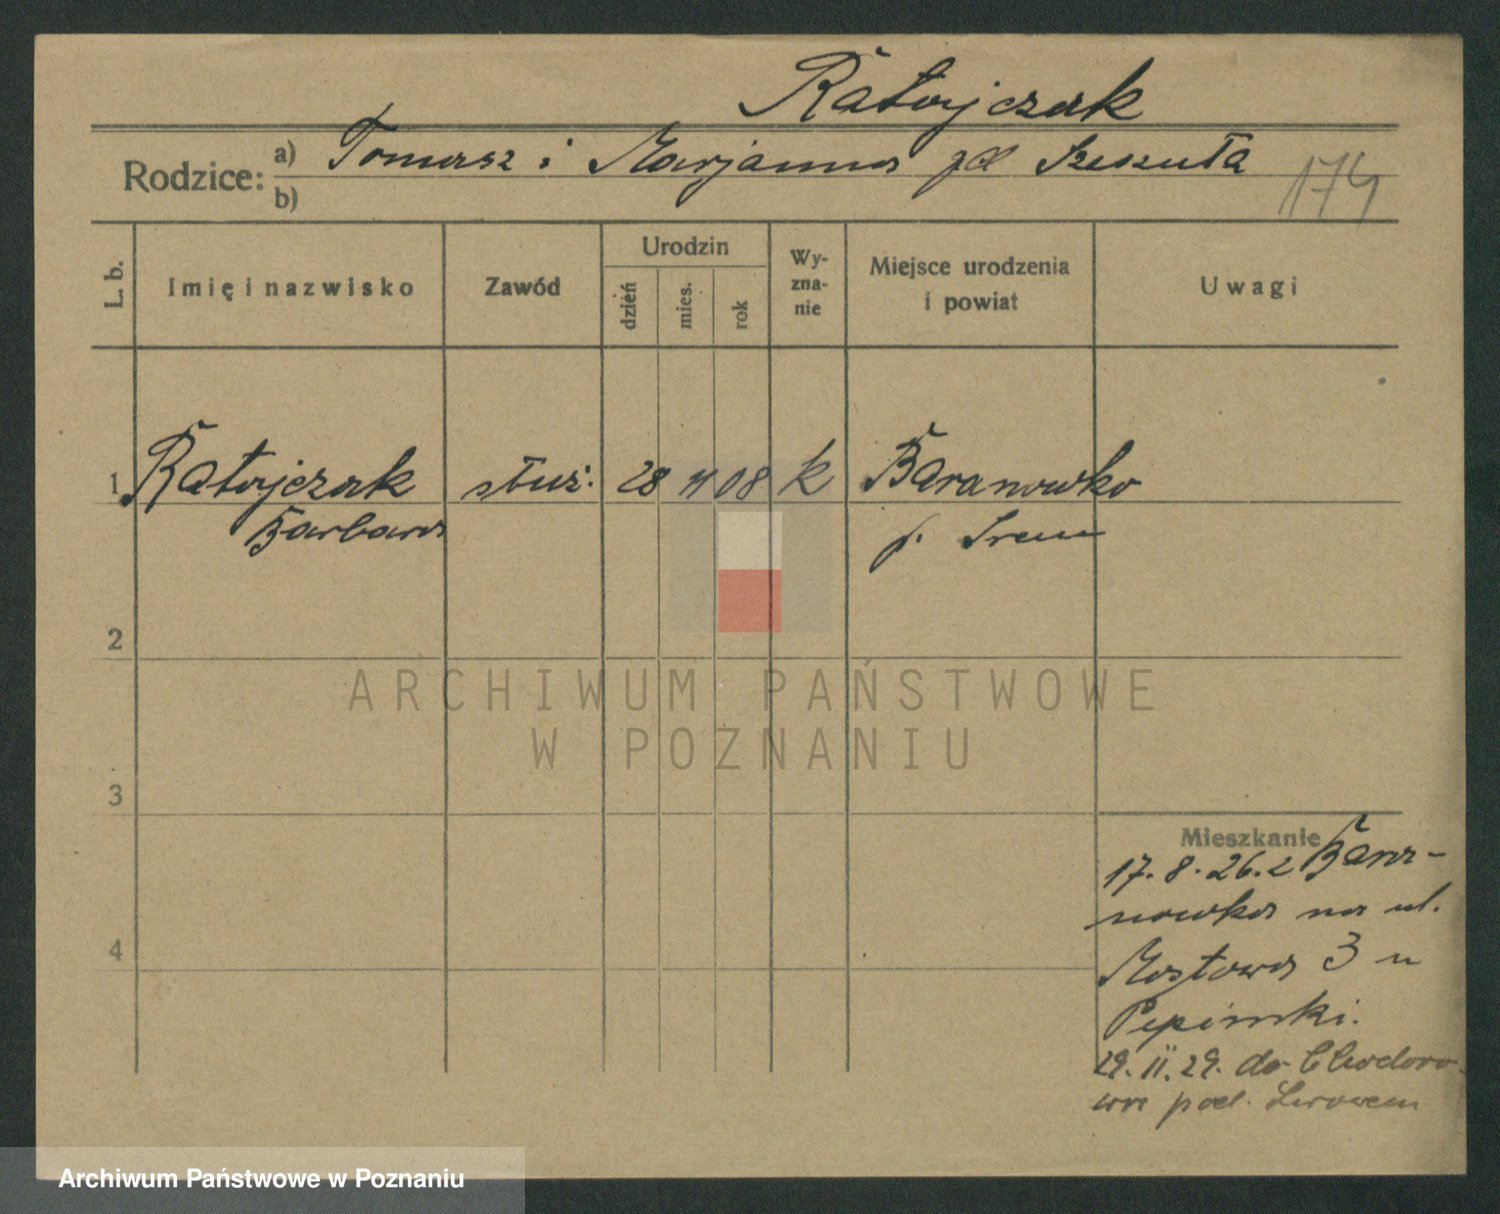 Ratajczak
Rodzice:
a) Tomasz i Marjanna zd Szeszuła
b)
174
L. b.
Imię i nazwisko
Zawód
Urodzin
dzień
mies.
rok
Wy-
zna-
nie
Miejsce urodzenia
i powiat
Uwagi
1 Ratajczak służ. 28 11 08 k Baranowko
Barbara p. Srem
2
3
4
Mieszkanie
17.8.26. z Bara-
nowka na ul.
Mostowa 3 u
Pepinski.
29. II. 29. do Chodoro-
wa pod. Lwowem
ARCHIWUM PAŃSTWOWE
W POZNANIU
Archiwum Państwowe w Poznaniu